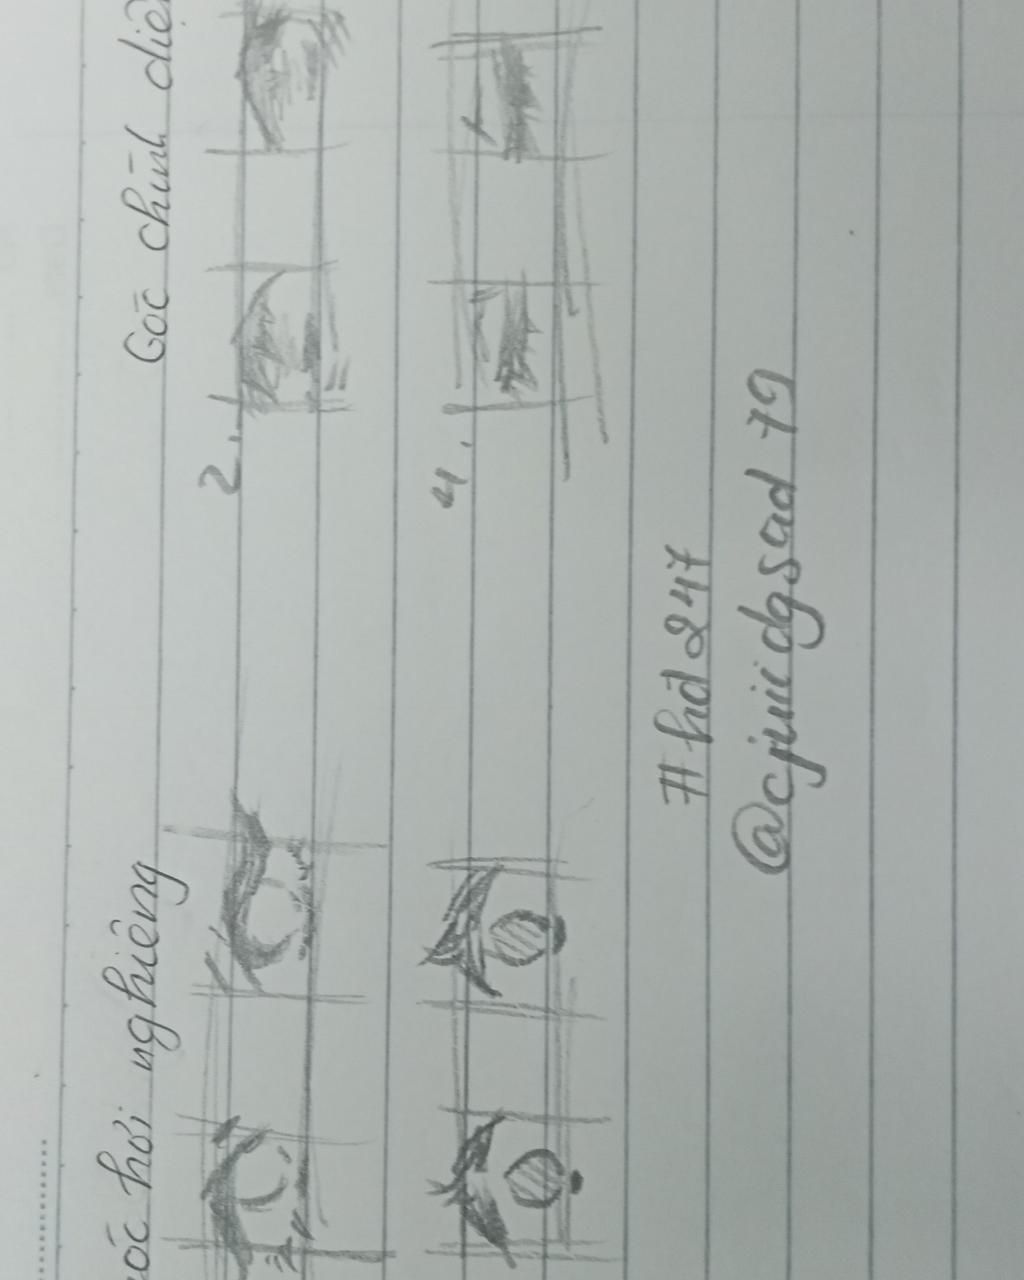 Góc hơi nghiêng
Góc chính diện
2.
4.
#hd247
@cjuiidgsad79